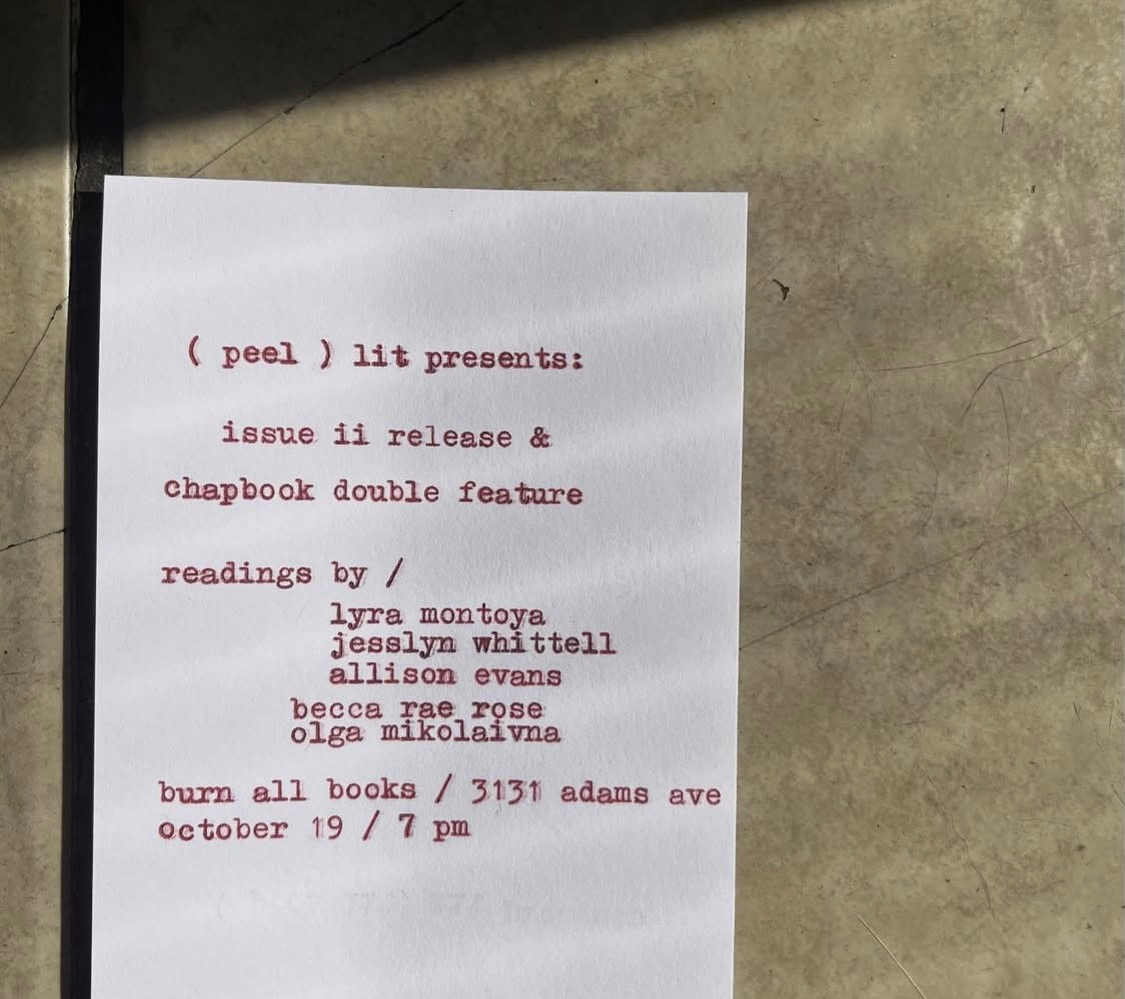 ( peel ) lit presents:
issue ii release &
chapbook double feature
readings by /
lyra montoya
jesslyn whittell
allison evans
becca rae rose
olga mikolaivna
burn all books / 3131 adams ave
october 19 / 7 pm